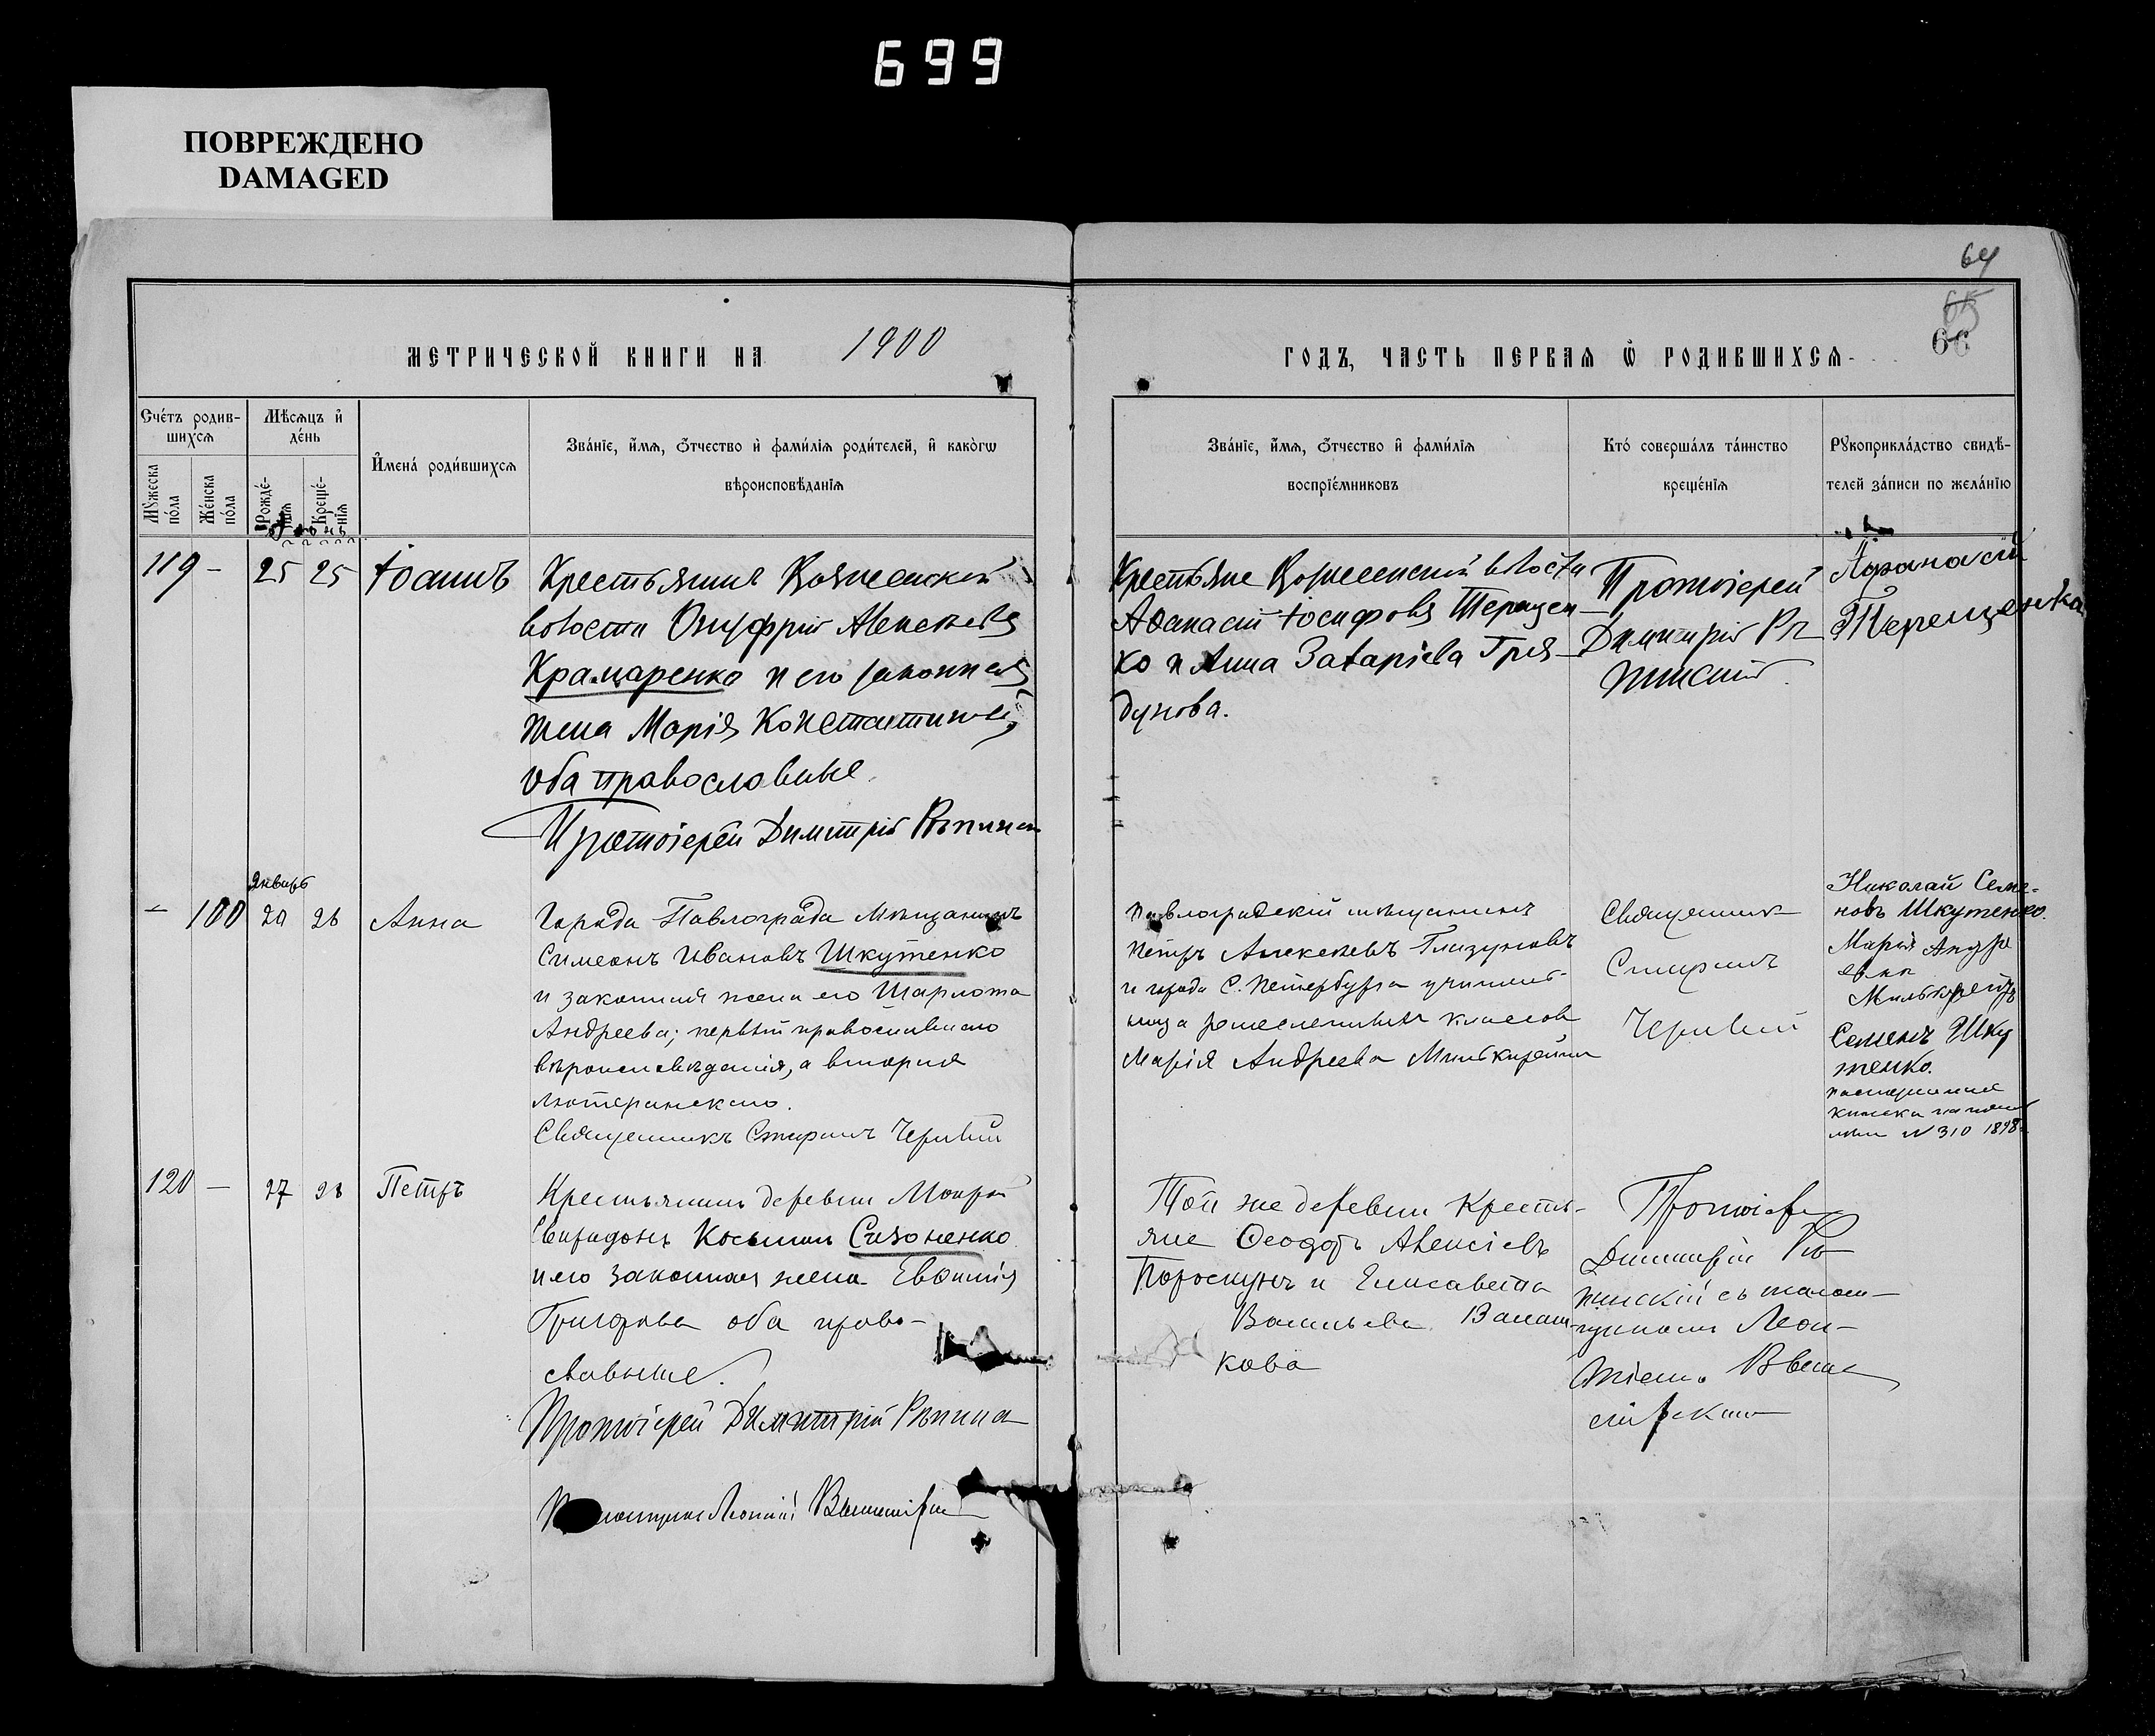 699
ПОВРЕЖДЕНО
DAMAGED
64
66
МЕТРИЧЕСКОЙ КНИГИ НА 1900
ГОДЪ, ЧАСТЬ ПЕРВАЯ Ѡ РОДИВШИХСЯ
Сче́тъ родив-
шихсѧ
Мѣсѧцъ и҆
де́нь
И҆мена̀ роди́вшихсѧ
Зва́нїе, и҆́мѧ, ѻ҆́тчество и҆ фами́лїѧ роди́телей, и҆ како́гѡ
вѣроисповѣ́данїѧ
Мꙋ́жеска
по́ла
Же́нска
по́ла
Рожде́-
нїѧ
Креще́-
нїѧ
Зва́нїе, и҆́мѧ, ѻ҆́тчество и҆ фами́лїѧ
воспрїе́мниковъ
Кто́ соверша́лъ та́инство
креще́нїѧ
Рꙋкоприкла́дство свидѣ́-
телей за́писи по жела́нїю
119 – 25 25 Іоаннъ
Крестьянинъ Вознесенской
волости Онуфрій Алексѣевъ
Крамаренко и его законная
жена Марія Константинова,
оба православные
Протоіерей Димитрій Рѣпинскій
Крестьяне Вознесенской волости
Аѳанасій Іосифовъ Терещен-
ко и Анна Захаріева Гря-
дунова.
Протоіерей
Димитрій Рѣ-
пинскій.
Афанасій
Терещенка
Январь
– 100 20 26 Анна
Города Павлограда мѣщанинъ
Симеонъ Ивановъ Шкутенко
и законная жена его Шарлота
Андреева; первый православнаго
вѣроисповѣданія, а вторая
лютеранскаго.
Священникъ Стефанъ
Павлоградскій мѣщанинъ
Петръ Алексѣевъ Глизуновъ
и города С. Петербурга учитель-
ница ремесленныхъ классовъ
Марія Андреева
Священникъ
Стефанъ
Николай Семе-
новъ Шкутенко.
Марія Андре
евна
Семенъ Шку
тенко.
книжка
№ 310 1898
120 – 27 28 Петръ
Крестьянинъ деревни Мокрой
Свиридонъ Косьминъ Сизоненко
и его законная жена Евѳимія
Григорьева оба право-
славные.
Протоіерей Димитрій Рѣпинс
Леонтій
Той же деревни крестья-
яне Ѳеодоръ Алексіевъ
и Елисавета
Васильева
кова
Протоіерей
Димитрій Рѣ-
пинскій съ псалом-
щикомъ Леон-
тіемъ